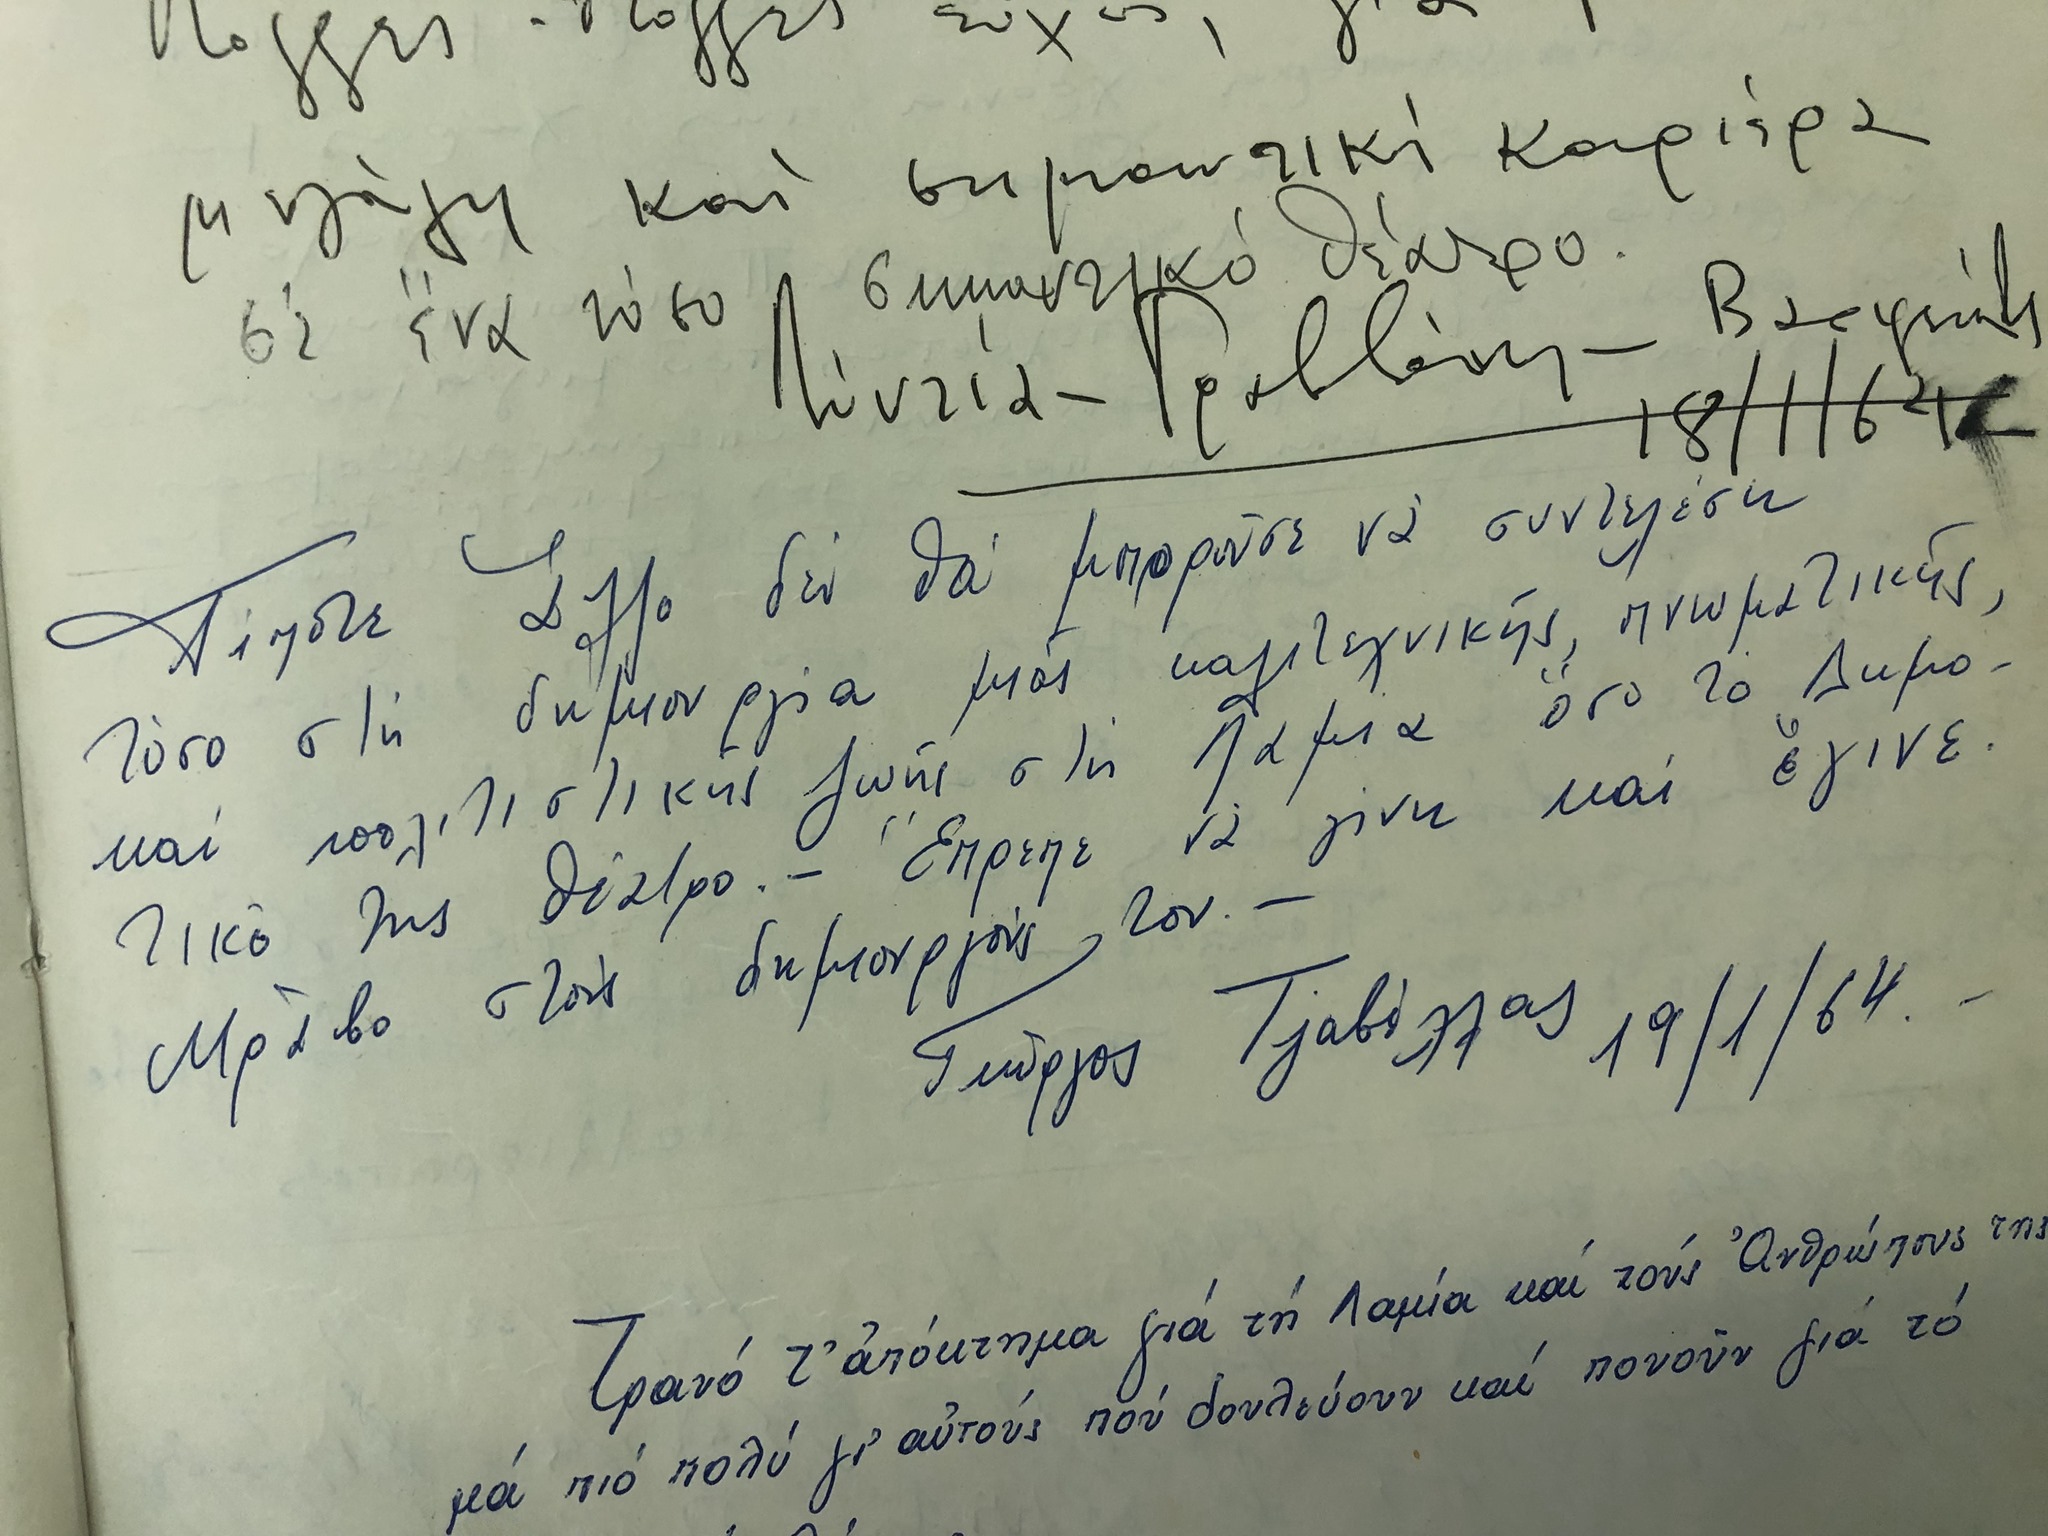 Πολλες - πολλες ευχές, για
μεγάλη καί σημαντική καριέρα
σέ ἕνα τόσο σημαντικό θέατρο.
18/1/64
Τίποτε ἄλλο δέν θά μποροῦσε νά συντελέση
τόσο στή δημιουργία μιᾶς καλιτεχνικῆς, πνωματικῆς,
καί πολιτιστικῆς ζωῆς στή Λαμία ὅσο τό Δημο-
τικό της θέατρο. - Ἔπρεπε νά γίνη καί ἔγινε.
Μπράβο στούς δημιουργούς του. -
Γιώργος Τζαβέλλας 19/1/64. -
Τρανό τ' ἀπόκτημα γιά τή Λαμία καί τούς Ἀνθρώπους της
μά πιό πολύ γι' αὐτούς πού δουλεύουν καί πονοῦν γιά τό